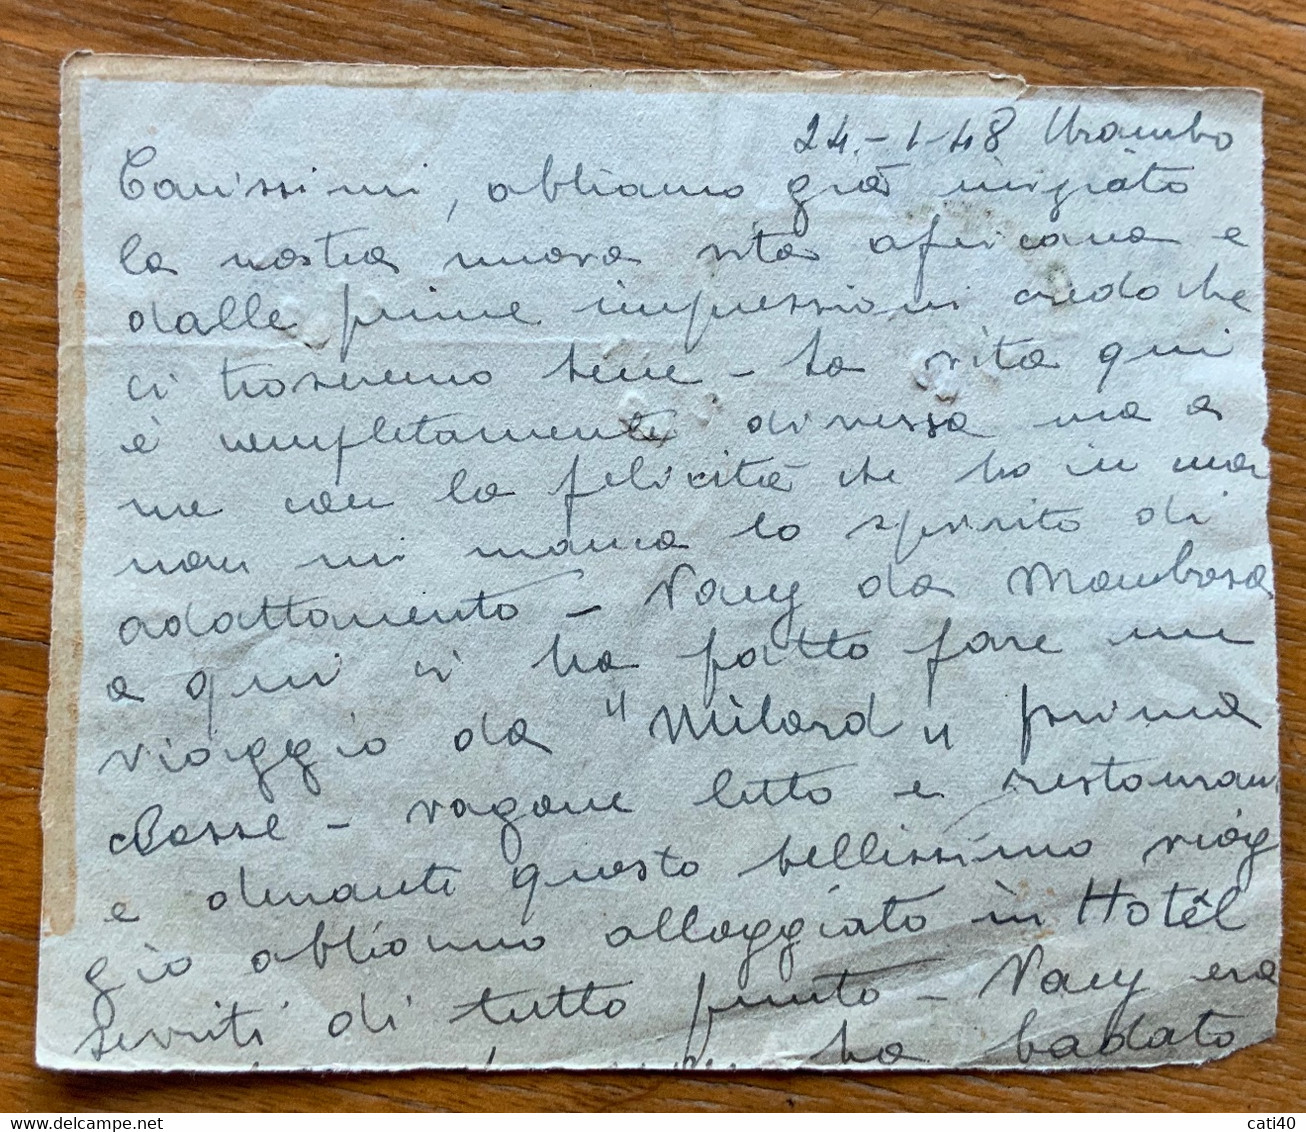 24-1-48 Urambo
Carissimi, abbiamo già iniziato
la nostra nuova vita africana e
dalle prime impressioni credo che
ci troveremo bene - La vita qui
è completamente diversa ma a
me con la felicità che ho in me
non mi manca lo spirito di
adattamento - Nany da Mombasa
a qui ci ha fatto fare un
viaggio da "Milord" prima
classe - vagone letto e restauran
e durante questo bellissimo viag
gio abbiamo alloggiato in Hotêl
serviti di tutto punto - Nany era
ha badato
cati40